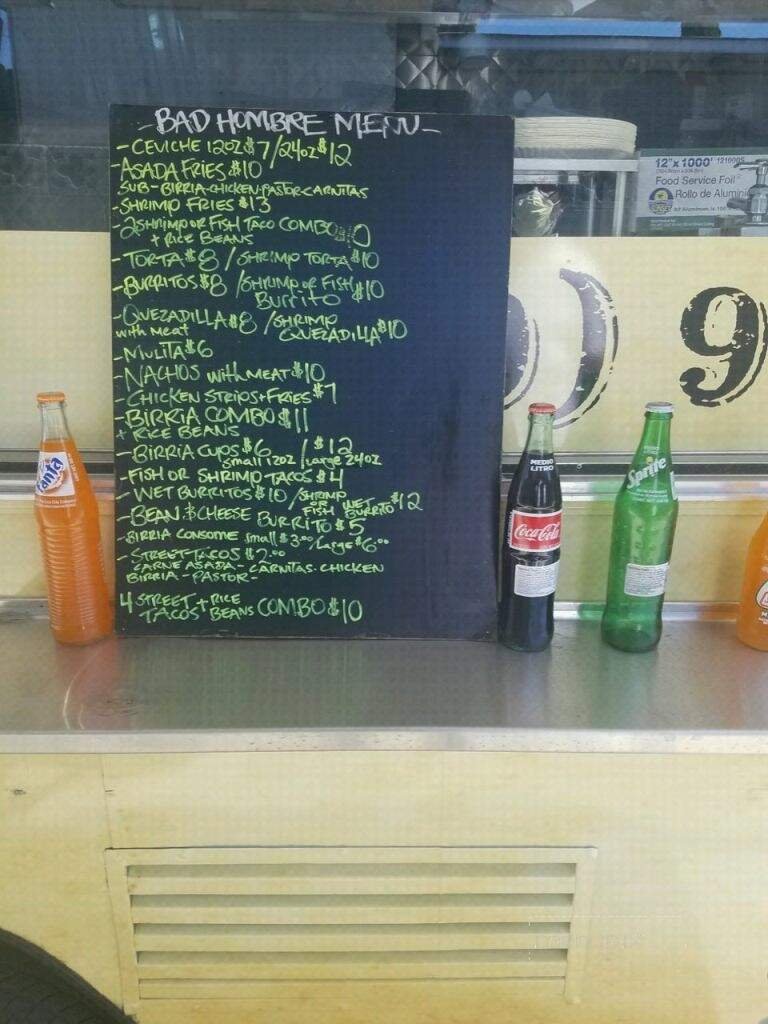 - BAD HOMBRE MENU -
- CEVICHE 12OZ $7/24OZ $12
- ASADA FRIES $10
SUB - BIRRIA - CHICKEN - PASTOR - CARNITAS
- SHRIMP FRIES $13
- 2 SHRIMP OR FISH TACO COMBO $10
+ RICE BEANS
- TORTA $8 / SHRIMP TORTA $10
- BURRITOS $8 / SHRIMP OR FISH BURRITO $10
- QUEZADILLA $8 / SHRIMP QUEZADILLA $10
with MEAT
- MULITA $6
- NACHOS with MEAT $10
- CHICKEN STRIPS + FRIES $7
- BIRRIA COMBO $11
+ RICE BEANS
- BIRRIA CUPS $6 / $12
small 12oz / large 24oz
- FISH OR SHRIMP TACOS $4
- WET BURRITOS $10 / SHRIMP OR FISH WET BURRITO $12
- BEAN & CHEESE BURRITO $5
- BIRRIA CONSOME small $3.00 / LARGE $6.00
- STREET TACOS $2.00
- CARNE ASADA - CARNITAS - CHICKEN
BIRRIA - PASTOR -
4 STREET TACOS + RICE BEANS COMBO $10
12" x 1000'
Food Service Foil
Rollo de Alumini
) 9
Fanta
MEDIO LITRO
Coca-Cola
Sprite